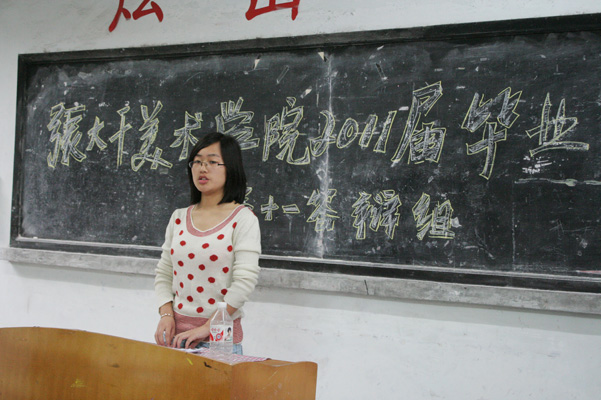 張大千美术学院2011届毕业
十一答辩组